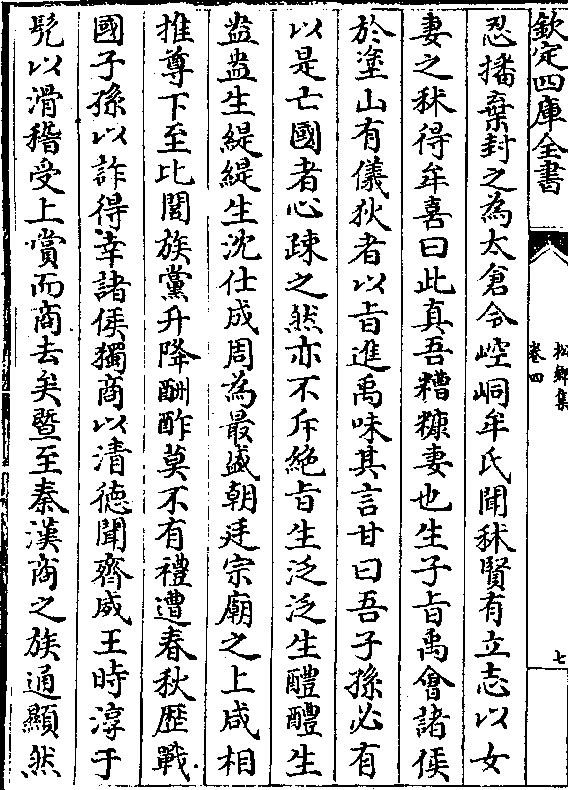 欽定四庫全書
松鄉集
卷四
七
忍播棄封之為太倉令崆峒牟氏聞秫賢有立志以女
妻之秫得牟喜曰此真吾糟糠妻也生子㫖禹㑹諸侯
於塗山有儀狄者以㫖進禹味其言甘曰吾子孫必有
以是亡國者心疎之然亦不斥絶㫖生泛泛生醴醴生
盎盎生緹緹生沈仕成周為最盛朝廷宗廟之上咸相
推尊下至比閭族黨升降酬酢莫不有禮遭春秋歴戰
國子孫以詐得幸諸侯獨商以清徳聞齊威王時淳于
髠以滑稽受上賞而商去矣暨至秦漢商之族通顯然